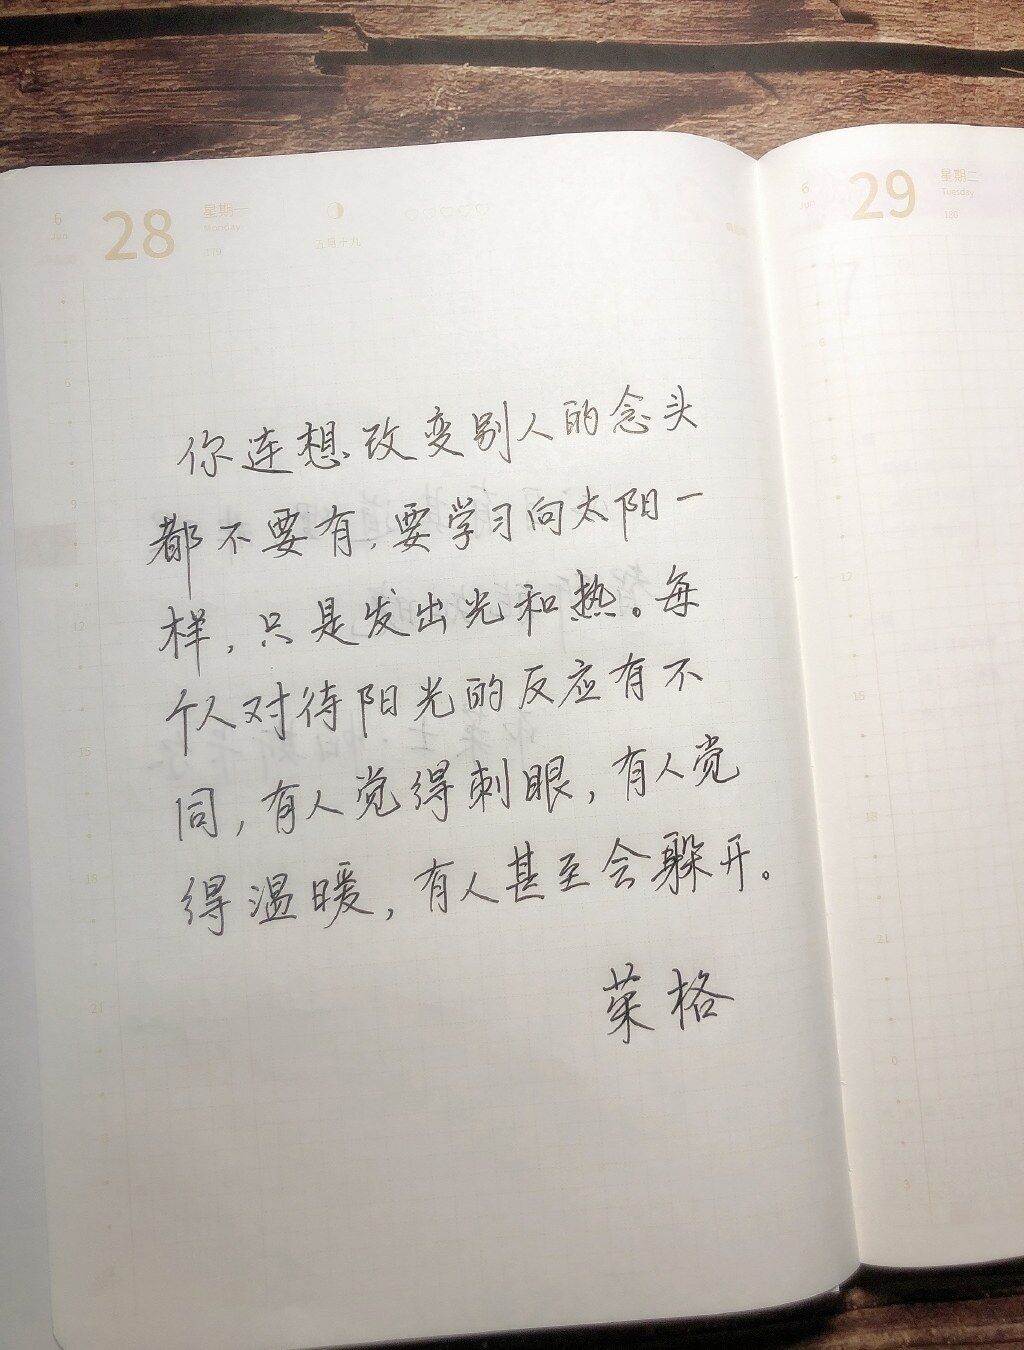 6
Jun
28
星期一
Monday
179
五月十九
6
Jun
29
星期二
Tuesday
180
你连想改变别人的念头
都不要有,要学习向太阳一
样,只是发出光和热。每
个人对待阳光的反应有不
同,有人觉得刺眼,有人觉
得温暖,有人甚至会躲开。
荣格
6
9
12
15
18
21
6
9
12
15
18
21
0
3